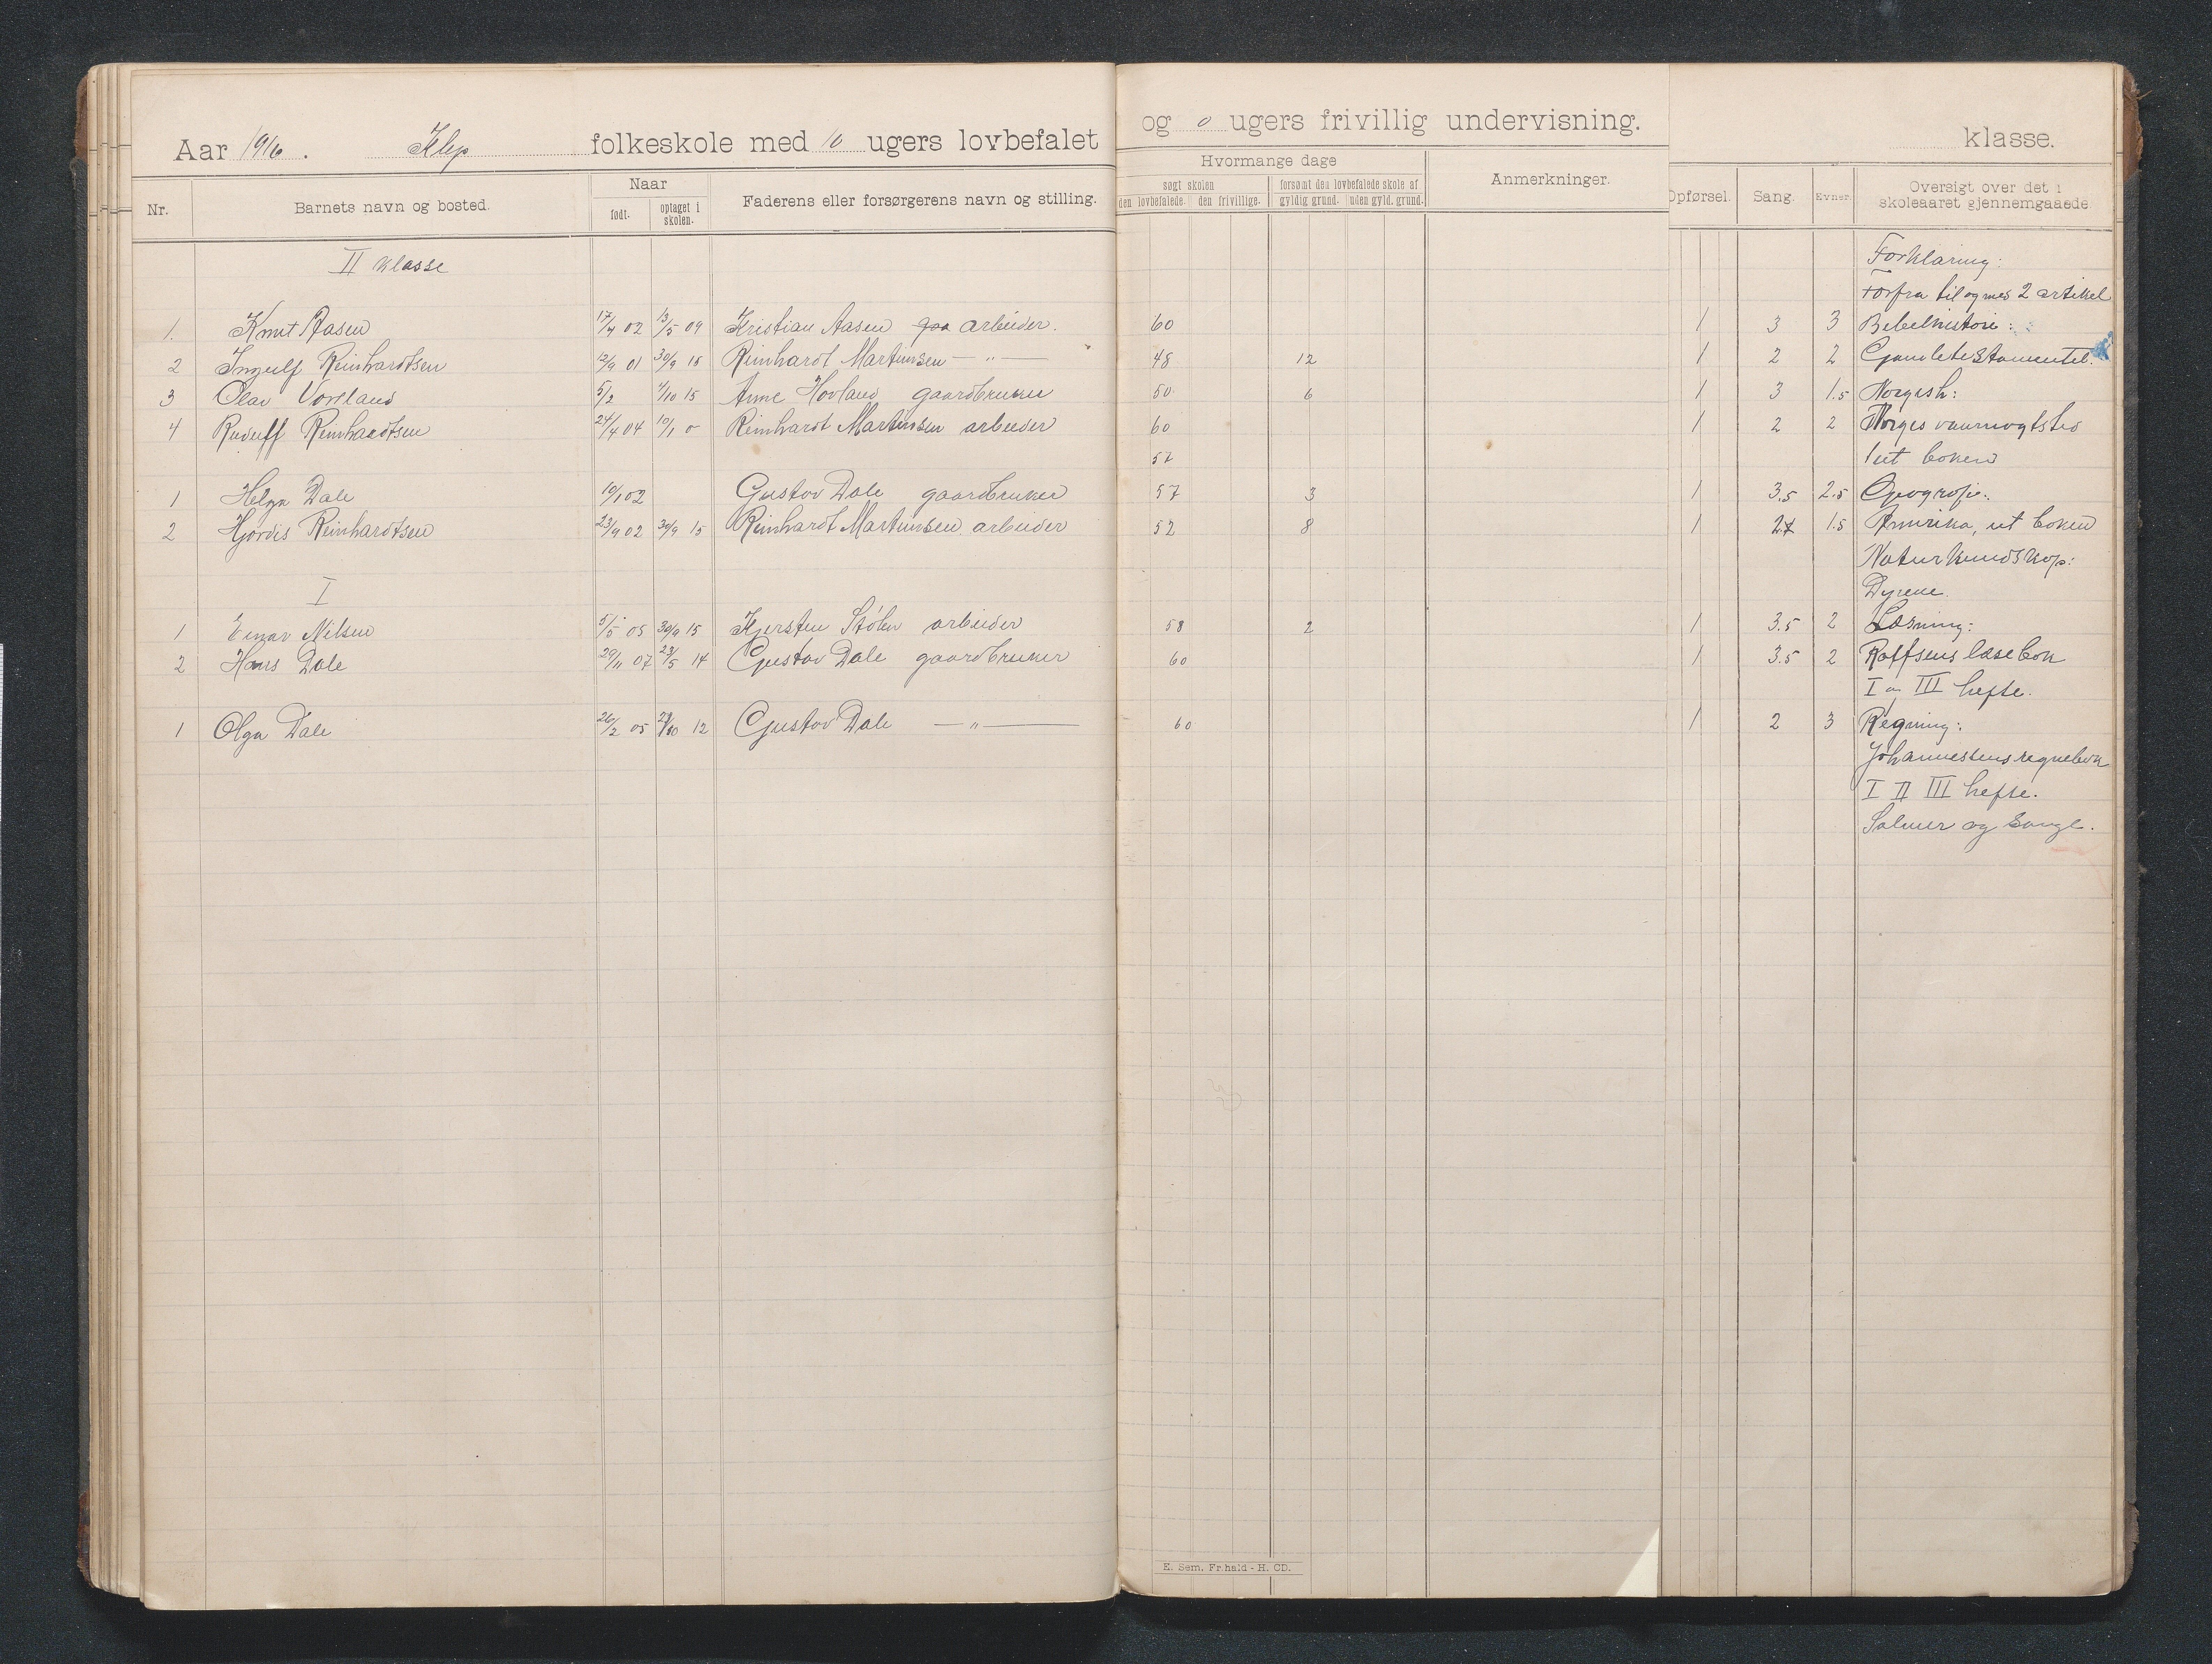 Aar 1916. Klep folkeskole med 10 ugers lovbefalet og 0 ugers frivillig undervisning. klasse.
Nr. Barnets navn og bosted. Naar født. optaget i skolen. Faderens eller forsørgerens navn og stilling. Hvormange dage søgt skolen den lovbefalede. den frivillige. forsømt den lovbefalede skole af gyldig grund. uden gyld. grund. Anmerkninger. Opførsel. Sang. Evner. Oversigt over det i skoleaaret gjennemgaaede
II klasse Forklaring:
Forfra til og med 2 artikel
1. Knut Aasen 17/4 02 13/5 09 Kristian Aasen arbeider. 60 1 3 3 Bebelhistorie:
2 Ingulf Reinhardtsen 12/9 01 30/9 15 Reinhardt Martinsen — " — 48 12 1 2 2 Gamletestamentet.
3 Olav 5/2 4/10 15 Anne Hovland gaardbruker 50 6 1 3 1.5 Norgesh:
4 Reinhardtsen 24/4 04 10/1 0 Reinhardt Martinsen arbeider 60 1 2 2 Norges
52 ut boken
1 Helga Dale 10/1 02 Gustav Dale gaardbruker 57 3 1 3.5 2.5 Geografi:
2 Hjørdis Reinhardtsen 23/9 02 30/9 15 Reinhardt Martinsen arbeider 52 8 1 1.5 Amerika, ut boken
Naturkundskap:
I Dyrene.
1 Einar Nilsen 5/5 05 30/9 15 Kjersten Stølen arbeider 58 2 1 3.5 2 Læsning:
2 Hans Dale 29/11 07 23/5 14 Gustav Dale gaardbruker 60 1 3.5 2 Rolfsens læsebok
I og III hefte.
1 Olga Dale 26/2 05 12 Gustav Dale — " — 60 1 2 3 Regning:
Johannessens regnebok
I II III hefte.
Salmer og sange.
E. Sem. Fr.hald - H. CD.